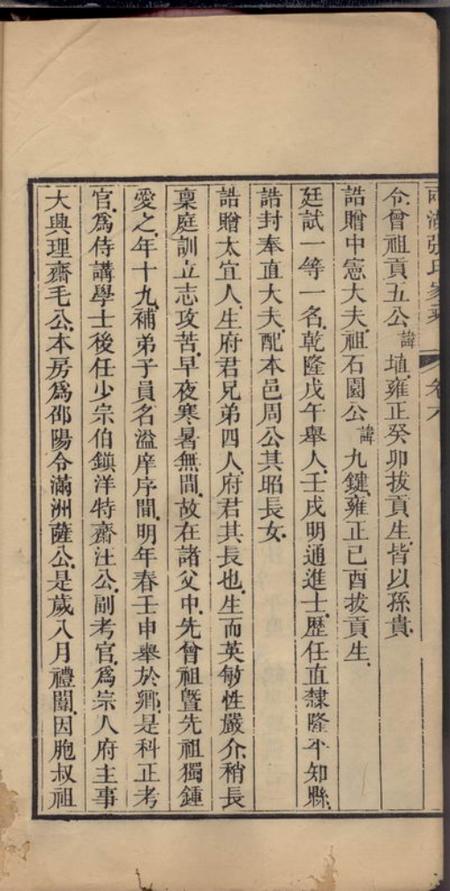 令曾祖貢五公諱塤雍正癸卯拔貢生皆以孫貴
誥贈中憲大夫祖石園公諱九鍵雍正己酉拔貢生
廷試一等一名乾隆戊午舉人壬戌明通進士歷任直隸隆平知縣
誥封奉直大夫配本邑周公其昭長女
誥贈太宜人生府君兄弟四人府君其長也生而英敏性嚴介稍長
稟庭訓立志攻苦早夜寒暑無間故在諸父中先曾祖暨先祖獨鍾
愛之年十九補弟子員名溢庠序間明年春壬申舉於鄉是科正考
官爲侍講學士後任少宗伯鎮洋特齋汪公副考官爲宗人府主事
大典理齋毛公本房爲邵陽令滿洲薩公是歲八月禮闈因胞叔祖